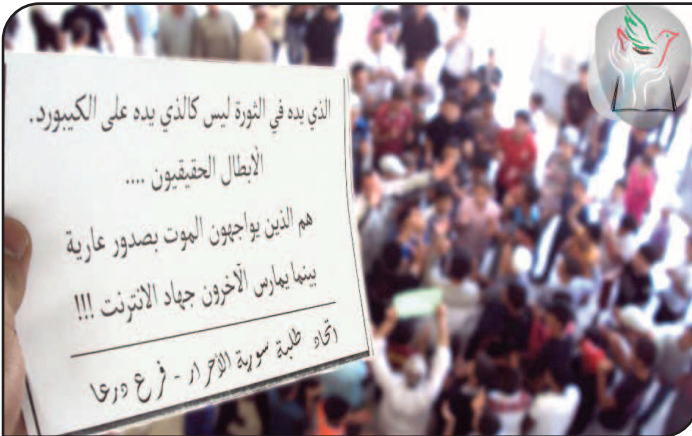 الذي يده في الثورة ليس كالذي يده على الكيبورد.
الأبطال الحقيقيون ....
هم الذين يواجهون الموت بصدور عارية
بينما يمارس الآخرون جهاد الانترنت !!!
اتحاد طلبة سورية الأحرار - فرع درعا